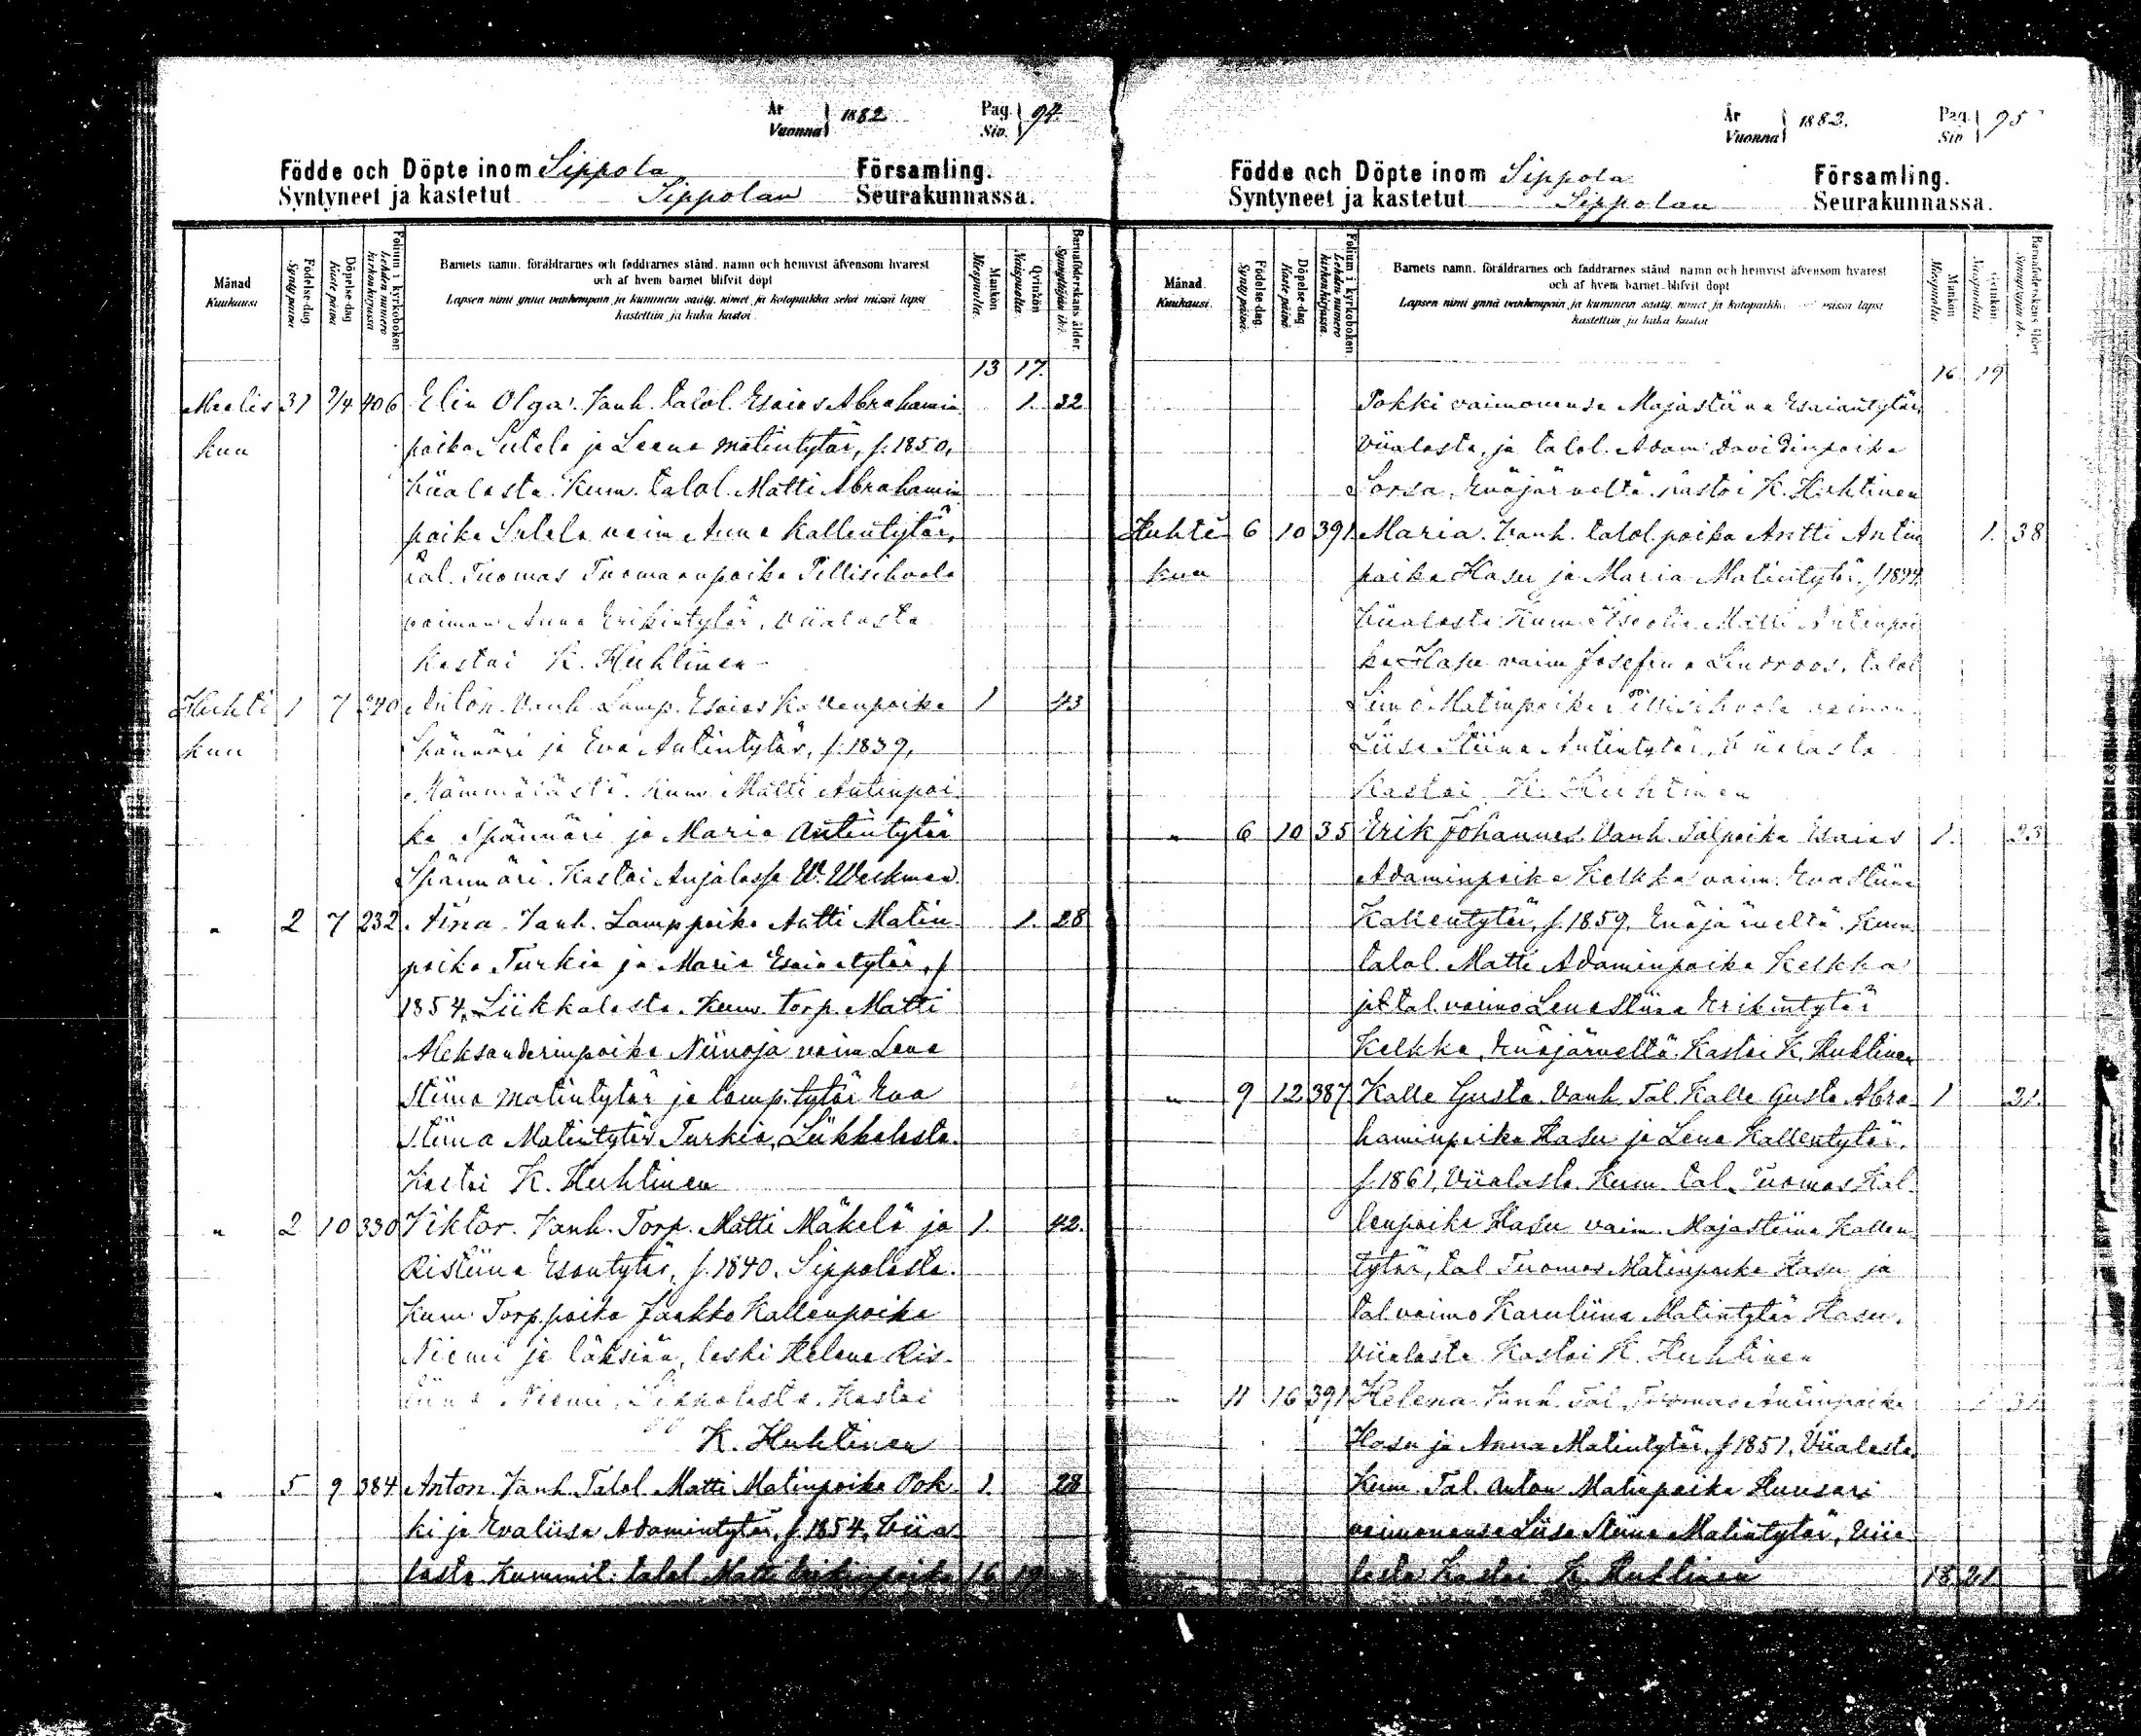 År
Vuonna
1882
Pag.
Siv.
94
Födde och Döpte inom Sippola Församling.
Syntyneet ja kastetut Sippolan Seurakunnassa.
Månad
Kuukausi
Födelse-dag
Synty päivä
Döpelse-dag
Kaste päivä
Folium i kyrkoboken
Lehden numero
kirkonkirjassa
Barnets namn, föräldrarnes och faddrarnes stånd, namn och hemvist äfvensom hvarest
och af hvem barnet blifvit döpt
Lapsen nimi ynnä vanhempain ja kummein sääty, nimet ja kotopaikka sekä missä lapsi
kastettiin ja kuka kastoi
Mankön
Miespuolta.
Qvinkön
Naispuolta.
Barnaföderskans ålder.
Synnyttäjän ikä.
13 17.
Maalis 31 2/4 406 Elin Olga. Vanh. talol. Esaias Abrahamin 1. 32
kuu poika Sutela ja Leena Matintytär, s. 1850,
Viialasta. Kum. talol. Matti Abrahamin
poika Sutela vaim Anna Kallentytär,
tal. Tuomas Tuomaanpoika Pillisihvola
vaimon Anna Erikintytär, Viialasta
Kastoi K. Huhtinen
Huhti 1 7 240 Anton. Vanh. Lamp. Esaias Kallenpoika 1 43
kuu Spännäri ja Eva Antintytär, s. 1839,
Mämmälästä. Kum Matti Antinpoi-
ka Spännäri ja Maria Antintytär
Spännäri. Kastoi Anjalassa W. Weckman.
" 2 7 232 Aina. Vanh. Lamppoika Antti Matin- 1. 28
poika Turkia ja Maria Esaiatytär, s
1854, Liikkalasta. Kum. torp. Matti
Aleksanderinpoika Niinoja vaim Lena
Stiina Matintytär ja lamp. tytär Eva
Stiina Matintytär Turkia, Liikkalasta.
Kastoi K. Huhtinen
" 2 10 330 Viktor. Vanh. Torp. Matti Mäkelä ja 1. 42.
Ristiina Esantytär, s. 1840. Sippolasta.
Kum Torp. poika Jaakko Kallenpoika
Niemi ja läksiän, leski Helena Ris-
tiina Niemi, Sippolasta. Kastoi
K. Huhtinen
" 5 9 384 Anton. Vanh. Talol. Matti Matinpoika Pok- 1. 28
ki ja Evaliisa Adamintytär, s. 1854, Viia-
lasta. Kummit: talol. Matti Erikinpoika 16 19
År
Vuonna
1882.
Pag.
Siv
95
Födde och Döpte inom Sippola Församling.
Syntyneet ja kastetut Sippolan Seurakunnassa.
Månad.
Kuukausi.
Födelse-dag.
Synty päivä.
Döpelse-dag.
Kaste päivä.
Folium i kyrkoboken.
Lehden numero
kirkonkirjassa.
Barnets namn, föräldrarnes och faddrarnes stånd namn och hemvist äfvensom hvarest
och af hvem barnet blifvit döpt
Lapsen nimi ynnä vanhempain ja kummein sääty, nimet ja kotopaikka missä lapsi
kastettiin ja kuka kastoi
Mankön
Miespuolta
Qvinkön
Naispuolta
Barnaföderskans ålder
16 19
Pokki vaimonensa Majastiina Esaiantytär,
Viialasta, ja talol. Adam Davidinpoika
Sorsa, Enäjärveltä. Kastoi K. Huhtinen
Huhti 6 10 391 Maria. Vanh. talol. poika Antti Antin 1. 38
kuu poika Hasu ja Maria Matintytär, s 1844
Viialasta. Kum Itsellis Matti Antinpoi
ka Hasu vaim Josefina Lindroos, talol
Simo Matinpoika Pillisihvola vaimon
Liisa Stiina Antintytär, Viialasta
Kastoi K. Huhtinen
" 6 10 35 Erik Johannes. Vanh. Talpoika Esaias 1. 23
Adaminpoika Kelkka vaim. Eva Stiina
Kallentytär, s. 1859. Enäjärveltä. Kum.
talol. Matti Adaminpoika Kelkka
ja tal. vaimo Lena Stiina Erikintytär
Kelkka, Enäjärveltä. Kastoi K. Huhtinen
" 9 12 387 Kalle Gusta. Vanh. Tal. Kalle Gusta Abra- 1 21.
haminpoika Hasu ja Lena Kallentytär,
s. 1861, Viialasta. Kum. tal. Tuomas Kal-
lenpoika Hasu vaim. Majastiina Kallen
tytär, tal Tuomas Matinpoika Hasu ja
tal. vaimo Karuliina Matintytär Hasu,
Viialasta. Kastoi K. Huhtinen
" 11 16 391 Helena. Vanh. Tal. Tuomas Antinpoika 1 31
Hasu ja Anna Matintytär, s 1851, Viialasta.
Kum. Tal. Anton Matinpoika Huusari
vaimonensa Liisa Stiina Matintytär, Viia
lasta Kastoi K. Huhtinen 18 21